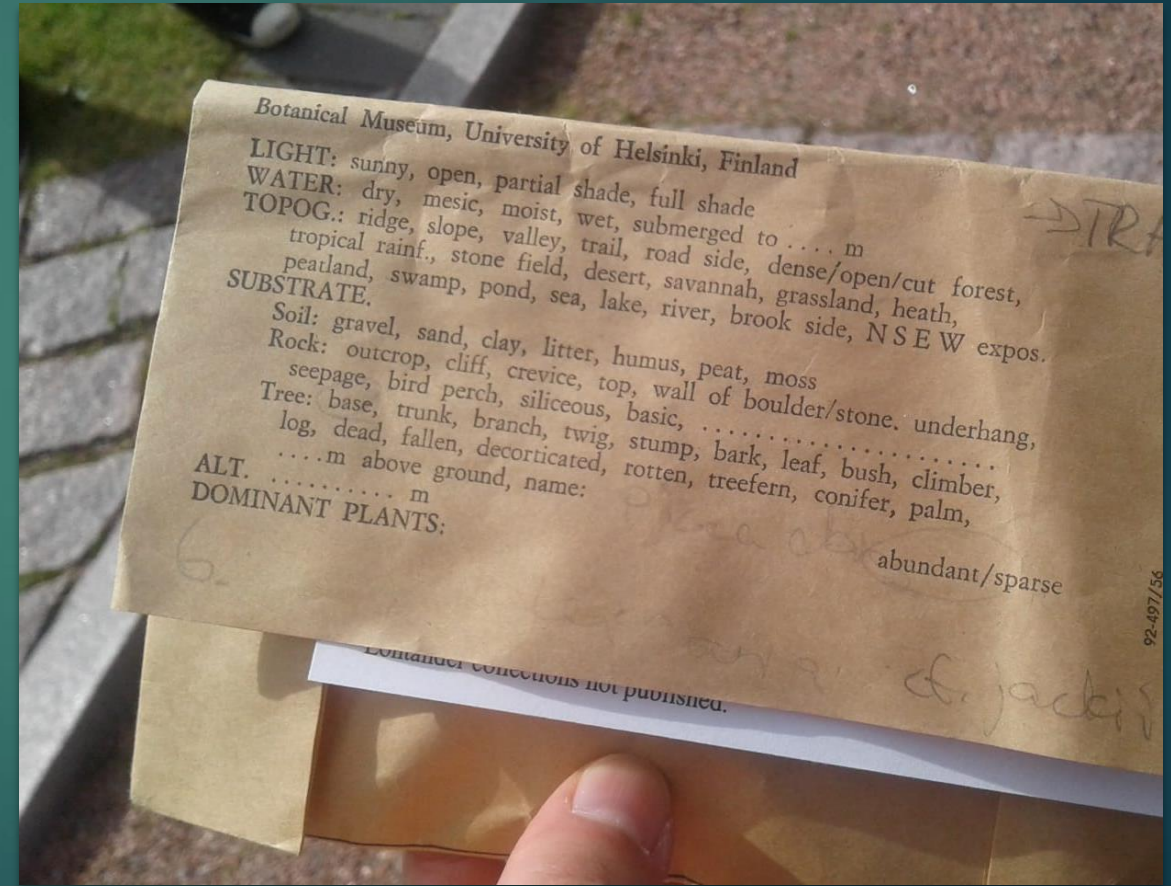 Botanical Museum, University of Helsinki, Finland
LIGHT: sunny, open, partial shade, full shade
WATER: dry, mesic, moist, wet, submerged to .... m
TOPOG.: ridge, slope, valley, trail, road side, dense/open/cut forest,
tropical rainf., stone field, desert, savannah, grassland, heath,
peatland, swamp, pond, sea, lake, river, brook side, N S E W expos.
SUBSTRATE.
Soil: gravel, sand, clay, litter, humus, peat, moss
Rock: outcrop, cliff, crevice, top, wall of boulder/stone. underhang,
seepage, bird perch, siliceous, basic, ......................
Tree: base, trunk, branch, twig, stump, bark, leaf, bush, climber,
log, dead, fallen, decorticated, rotten, treefern, conifer, palm,
....m above ground, name:
ALT. .......... m
DOMINANT PLANTS:
abundant/sparse
6.
cf. jackii
92-497/56
collections not published.